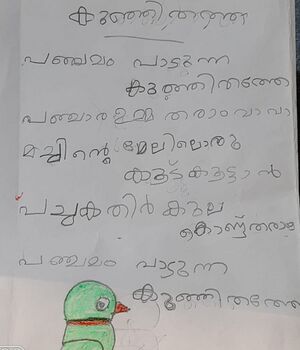 കുഞ്ഞിതത്ത
പഞ്ചമം പാടുന്ന
കുഞ്ഞിതത്തേ
പഞ്ചാര ഉമ്മ തരാം വാ വാ
മച്ചിന്റെ മേലിലൊരു
കൂട് കൂട്ടാൻ
പച്ചകതിർ കുല
കൊണ്ട് തരാം
പഞ്ചമം പാടുന്ന
കുഞ്ഞിതത്തേ